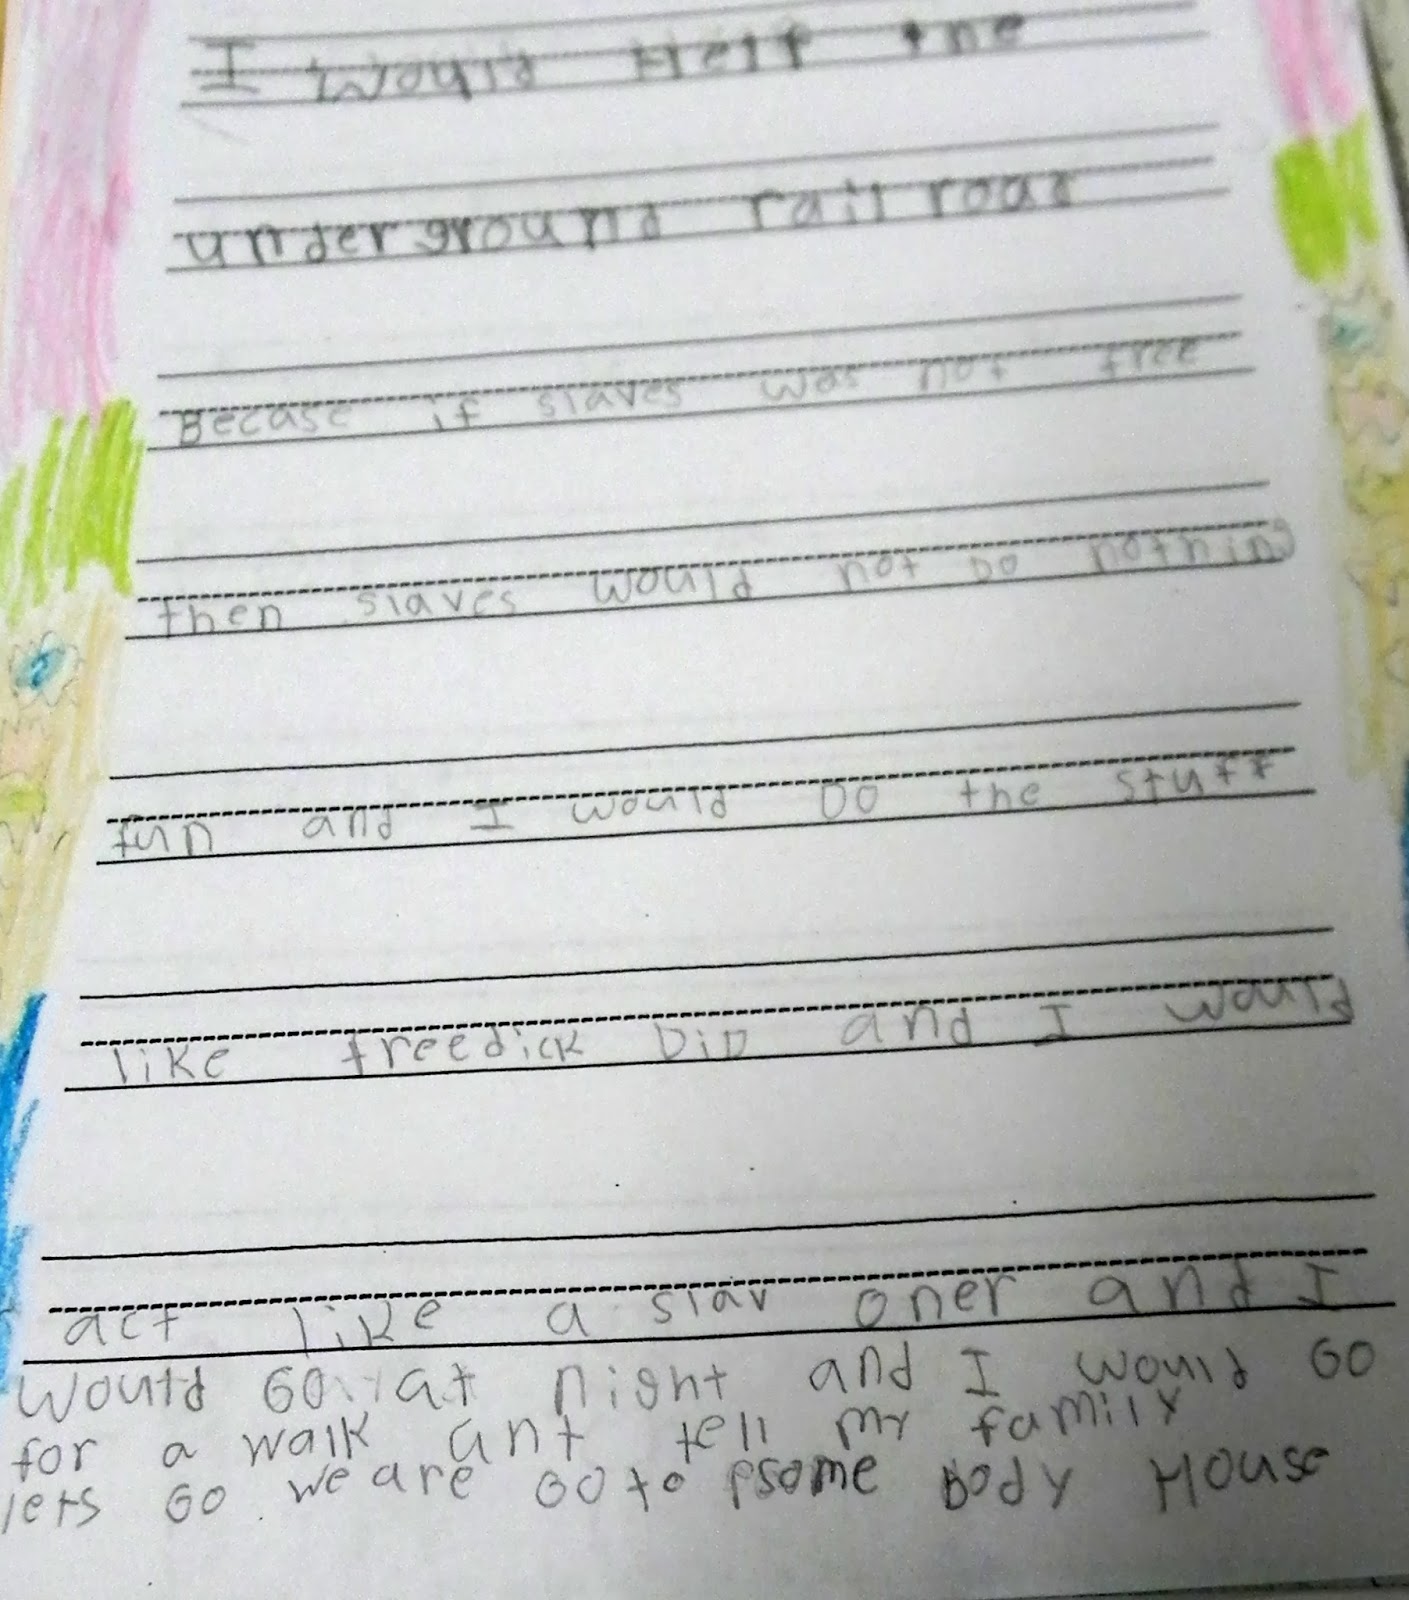 I Would Help the
underground railroad
Becase if slaves was not free
then slaves would not Do nothing
fun and I would DO the stuff
like freedick DiD and I would
act like a slav oner and I
Would GO at night and I would GO
for a walk ant tell my family
lets GO we are GO to some Body House